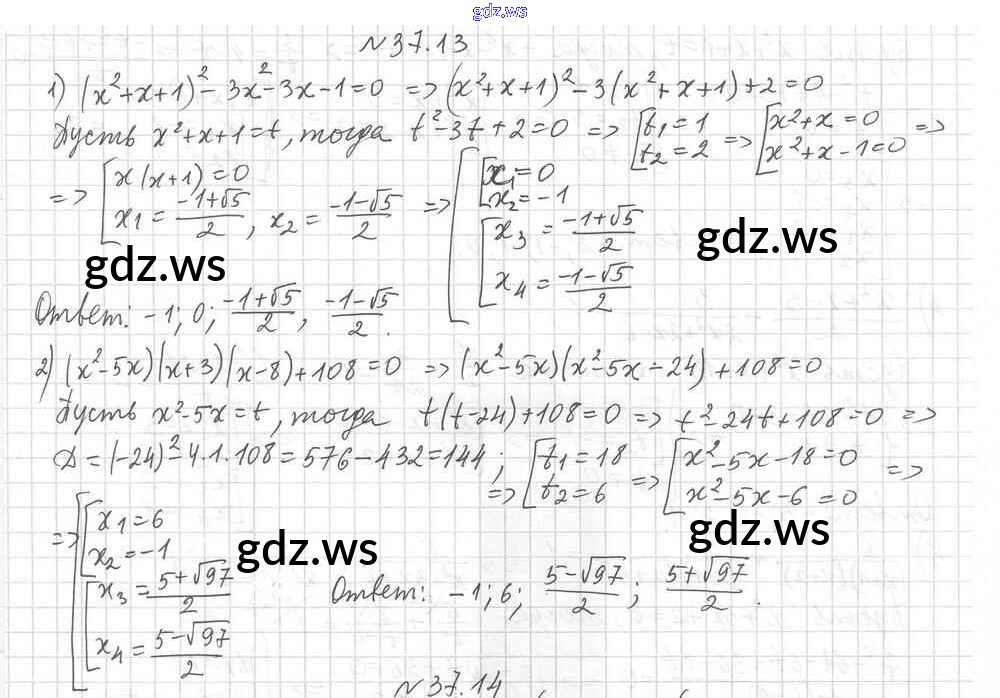 gdz.ws
№37.13
1) (x²+x+1)² - 3x² - 3x - 1 = 0 => (x²+x+1)² - 3(x²+x+1) + 2 = 0
Пусть x²+x+1=t, тогда t²-3t+2=0 => [t₁=1 t₂=2 => [x²+x=0 x²+x-1=0 =>
=> [x(x+1)=0 x₁=(-1+√5)/2, x₂=(-1-√5)/2 => [[x₁=0 x₂=-1 [x₃=(-1+√5)/2 x₄=(-1-√5)/2
gdz.ws
gdz.ws
Ответ: -1; 0; (-1+√5)/2, (-1-√5)/2.
2) (x²-5x)(x+3)(x-8)+108=0 => (x²-5x)(x²-5x-24)+108=0
Пусть x²-5x=t, тогда t(t-24)+108=0 => t²-24t+108=0 =>
D=(-24)²-4·1·108=576-432=144; => [t₁=18 t₂=6 => [x²-5x-18=0 x²-5x-6=0 =>
gdz.ws
gdz.ws
=> [[x₁=6 x₂=-1 [x₃=(5+√97)/2 x₄=(5-√97)/2
Ответ: -1; 6; (5-√97)/2; (5+√97)/2.
№37.14